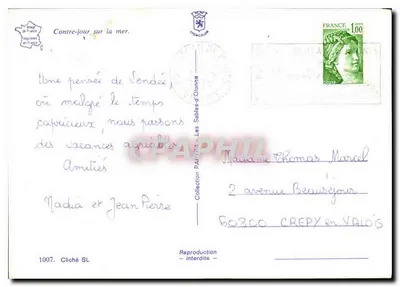 Contre-jour sur la mer.
FRANCE
1.00
Une pensée de Vendée,
où malgré le temps
capricieux, nous passons
des vacances agréables
Amitiés
Nadia et Jean Pierre
1007. Cliché SL
Collection PA Les Sables-d'Olonne
Madame Thomas Marcel
2 avenue Beauséjour
60800 CREPY en VALOIS
Reproduction
- interdite -